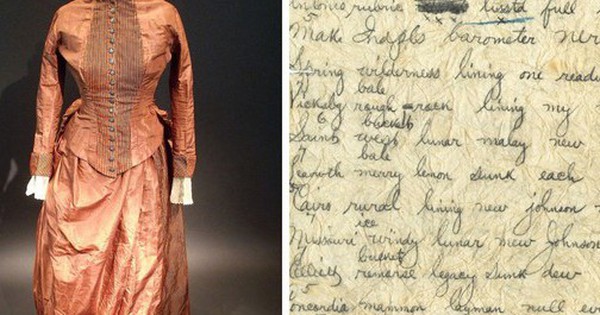 rubric lissa full
Mak Indpls barometer ner
Spring wilderness lining one readi
bale
Vicksbg rough-rack lining my
bucket
Saints west lunar malay new
bale
merry lemon sunk each
Cairo rural lining new johnson
ice
Missouri windy lunar new Johnson
bucket
legacy dew
Concordia mammon layman null eve